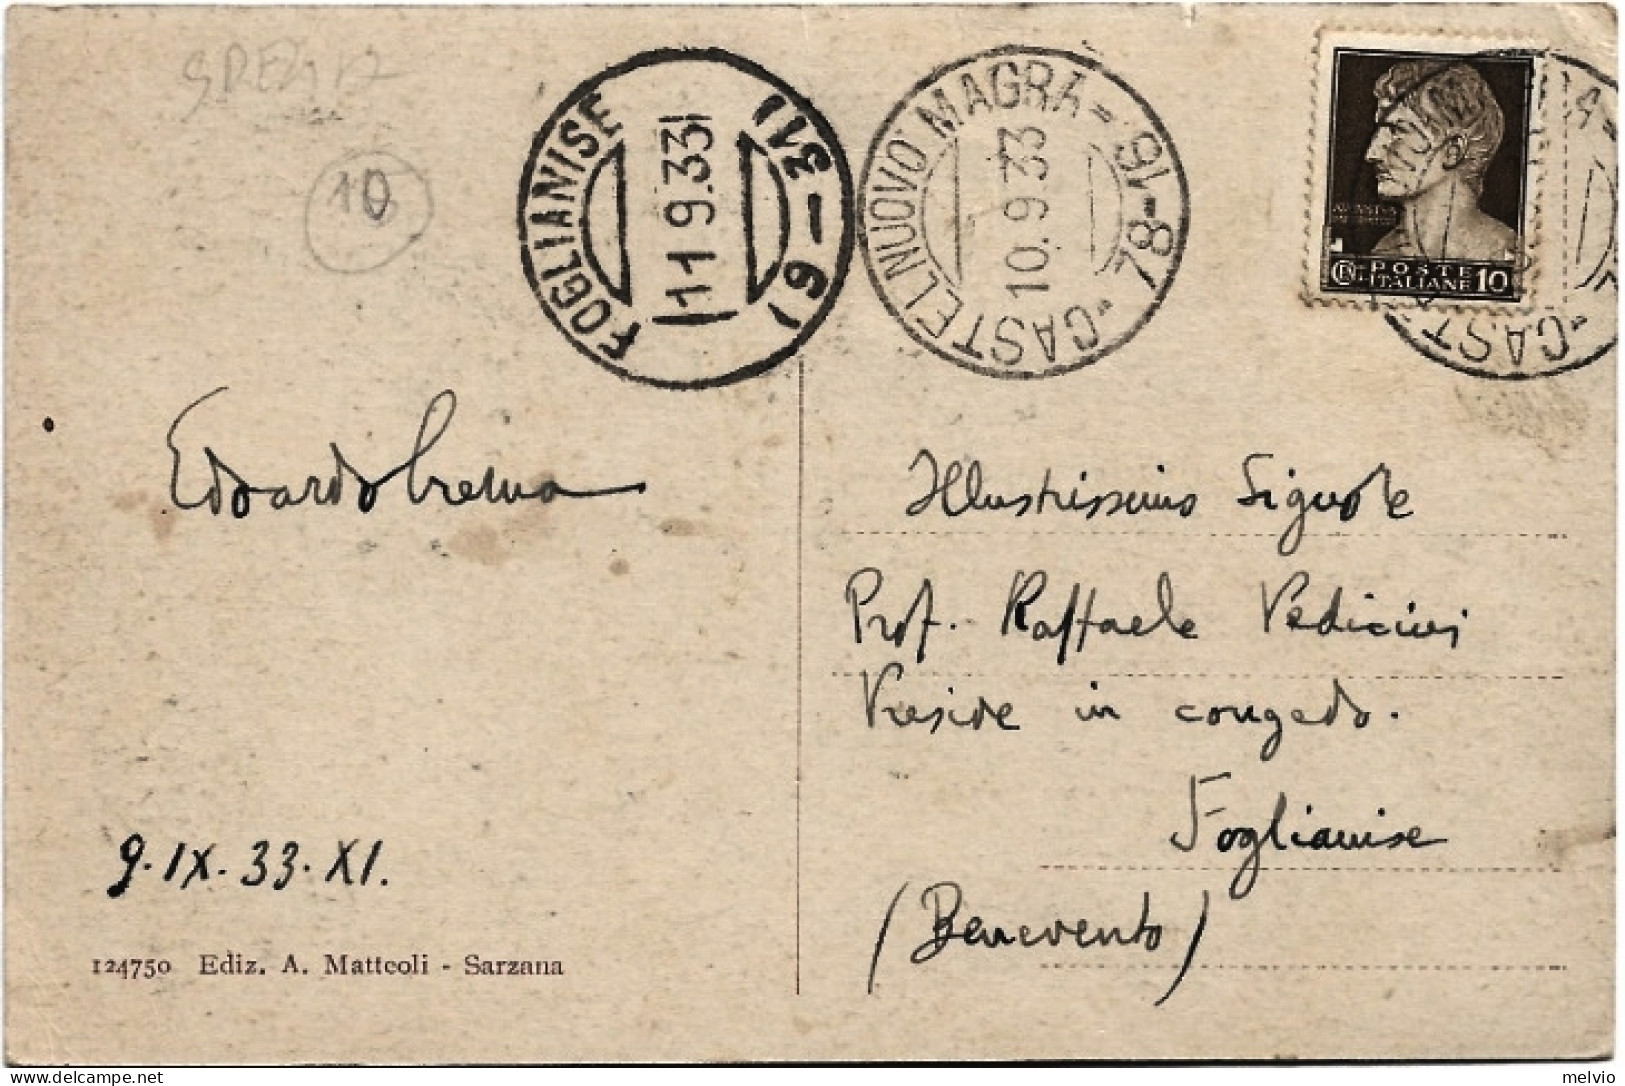 SPEZIA
10
FOGLIANISE
11 9.33
(61-31)
CASTELNUOVO MAGRA
10.9 33
78-91
POSTE
ITALIANE 10
Edoardo Crema
Illustrissimo Signore
Prof. Raffaele Pedicini
Preside in congedo.
Foglianise
(Benevento)
9.IX.33.XI.
124750 Ediz. A. Matteoli - Sarzana
melvio